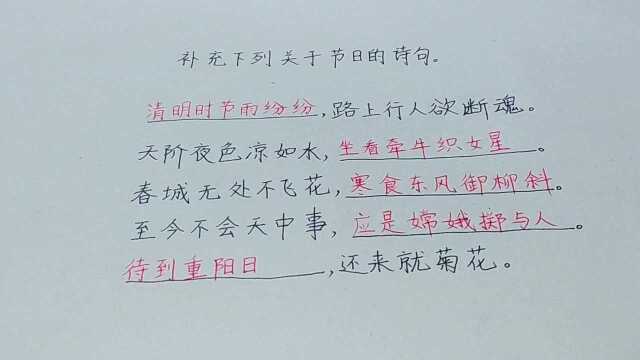 补充下列关于节日的诗句。
清明时节雨纷纷,路上行人欲断魂。
天阶夜色凉如水,坐看牵牛织女星。
春城无处不飞花,寒食东风御柳斜。
至今不会天中事,应是嫦娥掷与人。
待到重阳日,还来就菊花。